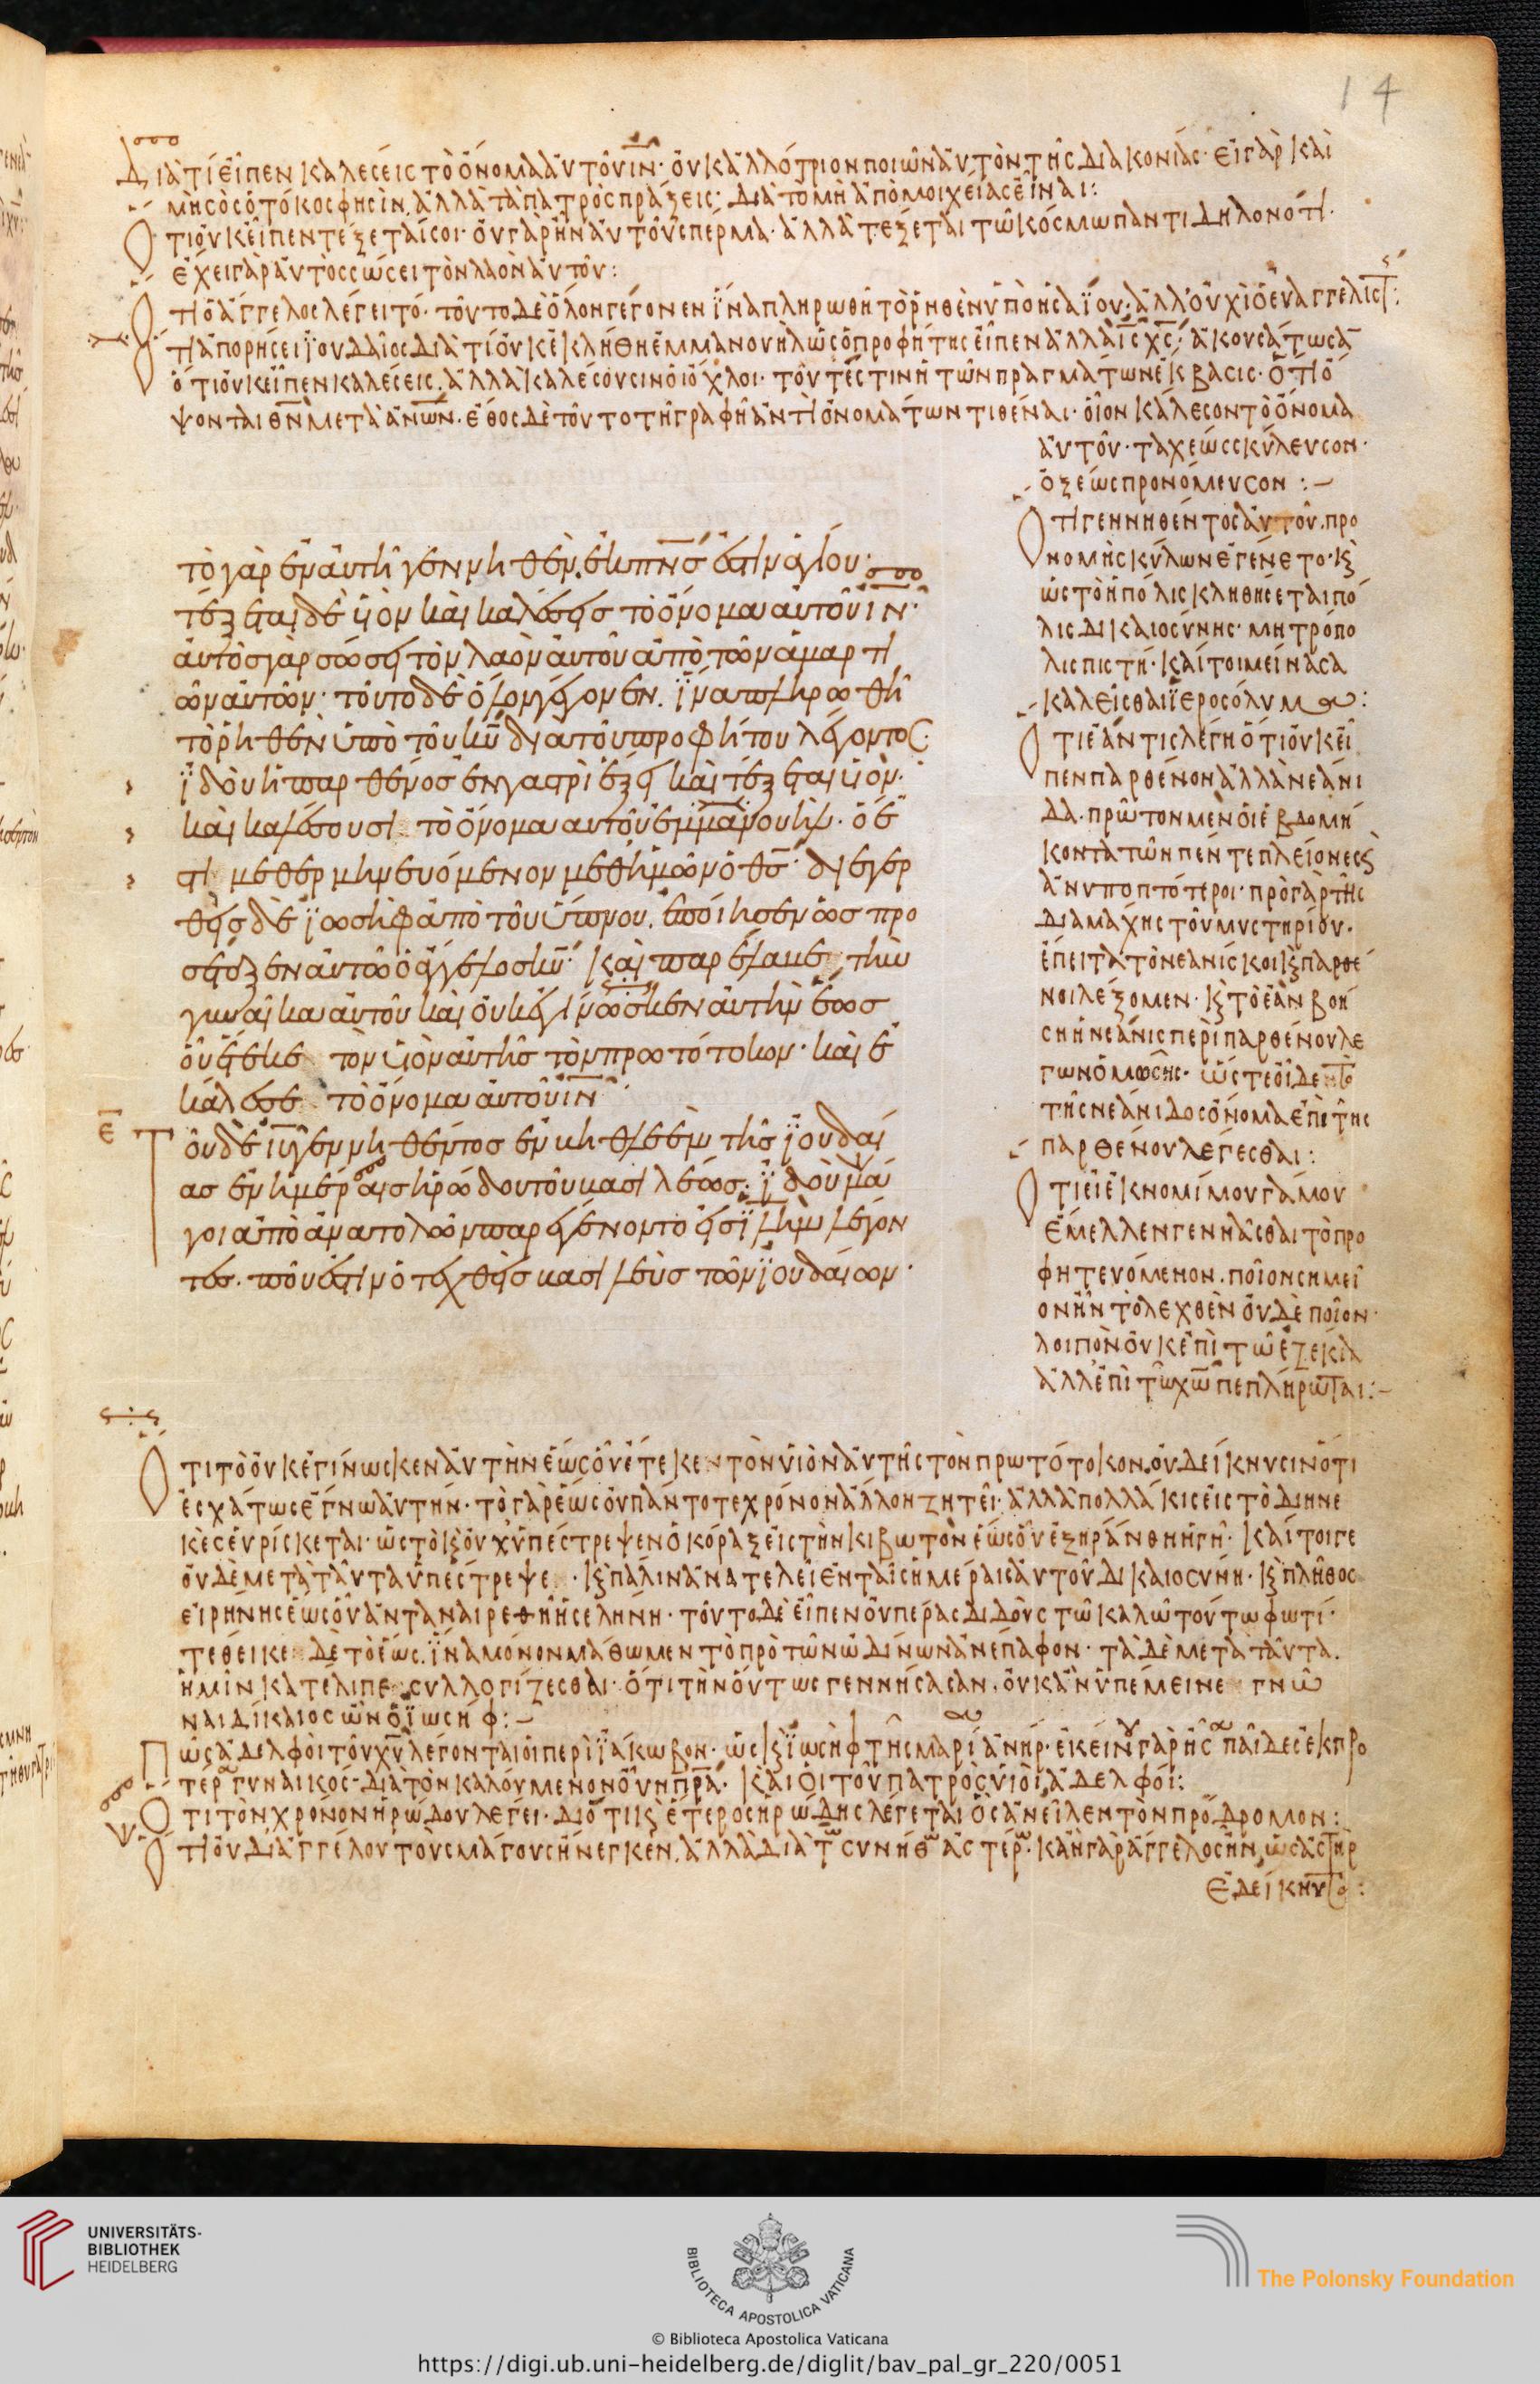 14
Διατί εἶπεν καλέσεις τὸ ὄνομα αὐτοῦ ιν· οὐκ ἀλλότριον ποιῶν αὐτὸν τῆς διακονίας· εἰ γὰρ καὶ
μὴ σὸς ὁ τόκος φησὶν, ἀλλὰ τὰ πατρὸς πράξεις· διὰ τὸ μὴ ἀπὸ μοιχείας εἶναι:
Ὅτι οὐκ εἶπεν τέξεταί σοι· οὐ γὰρ ἦν αὐτοῦ σπέρμα· ἀλλὰ τέξεται τῶ κόσμω παντὶ δηλονότι·
ἔχει γὰρ αὐτὸς σώσει τὸν λαὸν αὐτοῦ:
Ὅτι ὁ ἄγγελος λέγει τό· τοῦτο δὲ ὅλον γέγονεν ἵνα πληρωθῆ τὸ ῥηθὲν ὑπὸ ἡσαΐου· ἀλλ' οὐχὶ ὁ εὐαγγελιστ:
Ὅτι ἀπορήσει ϊουδαῖος διατί οὐκ ἐκλήθη ἐμμανουὴλ ὡς ὁ προφήτης εἶπεν ἀλλὰ ις χς· ἀκουσάτωσα
ὅτι οὐκ εἶπεν καλέσεις, ἀλλὰ καλέσουσιν οἱ ὄχλοι· τουτέστιν ἡ τῶν πραγμάτων ἔκβασις· ὅτι ὄ
ψονται θν μετὰ ανων· ἔθος δὲ τοῦτο τῆ γραφῆ ἀντὶ ὀνομάτων τιθέναι· οἷον κάλεσον τὸ ὄνομα
αὐτοῦ· ταχέως σκύλευσον·
ὀξέως προνόμευσον :-
Ὅτι γεννηθέντος αὐτοῦ, προ
νομὴ σκύλων ἐγένετο· κ
ὡς τὸ ἡ πόλις κληθήσεται πό
λις δικαιοσύνης· μητρόπο
λις πιστή· καίτοι μείνασα
καλεῖσθαι ϊεροσόλυμα:
Ὅτι ἐάν τις λέγη ὅτι οὐκ εἶ
πεν παρθένον ἀλλὰ νεάνι
δα. πρῶτον μὲν οἱ ἑβδομή
κοντα τῶν πέντε πλείονες κ
ἀνυποπτότεροι· πρὸ γὰρ τῆς
διαμάχης τοῦ μυστηρίου·
ἔπειτα τὸ νεανίσκοι κ παρθέ
νοι λέξομεν· κ τὸ ἐὰν βοή
ση ἡ νεάνις περὶ παρθένου λέ
γων ὁ μωσῆς· ὥστε οἶδε το
τῆς νεάνιδος ὄνομα ἐπὶ τῆς
παρθένου λέγεσθαι:
Ὅτι εἰ ἐκ νομίμου γάμου
ἔμελλεν γενηᾶσθαι τὸ προ
φητευόμενον, ποῖον σημεῖ
ον ἦν τὸ λεχθὲν οὐδὲ ποῖον·
λοιπὸν οὐκ ἐπὶ τῶ ἐζεκία
ἀλλ' ἐπὶ τῶ χω πεπλήρωται:-
τὸ γὰρ ἐν αὐτῆ γεννηθὲν, ἐκ πνς ἐστιν ἁγίου·
τέξεται δὲ υἱὸν καὶ καλέσεις τὸ ὄνομα αὐτοῦ ιν·
αὐτὸς γὰρ σώσει τὸν λαὸν αὐτοῦ ἀπὸ τῶν ἁμαρτι
ῶν αὐτῶν· τοῦτο δὲ ὅλον γέγονεν. ἵνα πληρωθῆ
τὸ ῥηθὲν ὑπὸ τοῦ κυ διὰ τοῦ προφήτου λέγοντος·
ϊδοὺ ἡ παρθένος ἐν γαστρὶ ἕξει καὶ τέξεται υἱὸν·
καὶ καλέσουσι τὸ ὄνομα αὐτοῦ ἐμμανουήλ· ὅ ἐ
στι μεθερμηνευόμενον μεθ' ἡμῶν ὁ θς· διεγερ
θεὶς δὲ ϊωσὴφ ἀπὸ τοῦ ὕπνου. ἐποίησεν ὡς προ
σέταξεν αὐτῶ ὁ ἄγγελος κυ· καὶ παρέλαβε τὴν
γυναῖκα αὐτοῦ καὶ οὐκ ἐγίνωσκεν αὐτὴν ἕως
οὗ ἔτεκε τὸν υἱὸν αὐτῆς τὸν πρωτότοκον· καὶ ἐ
κάλεσε τὸ ὄνομα αὐτοῦ ιν·
ε Τοῦ δὲ ιυ γεννηθέντος ἐν βηθλεὲμ τῆς ϊουδαί
ας ἐν ἡμέραις ἡρώδου τοῦ βασιλέως· ϊδοὺ μά
γοι ἀπὸ ἀνατολῶν παρεγένοντο εἰς ϊλημ λέγον
τες. ποῦ ἐστιν ὁ τεχθεὶς βασιλεὺς τῶν ϊουδαίων·
Ὅτι τὸ οὐκ ἐγίνωσκεν αὐτὴν ἕως οὗ ἔτεκεν τὸν υἱὸν αὐτῆς τὸν πρωτότοκον, οὐ δείκνυσιν ὅτι
ἐσχάτως ἔγνω αὐτήν· τὸ γὰρ ἕως οὐ πάντοτε χρόνον ἄλλον ζητεῖ· ἀλλὰ πολλάκις εἰς τὸ διηνε
κὲς εὑρίσκεται· ὡς τὸ κ οὐχ ὑπέστρεψεν ὁ κόραξ εἰς τὴν κιβωτὸν ἕως οὗ ἐξηράνθη ἡ γῆ· καίτοιγε
οὐδὲ μετὰ ταῦτα ὑπέστρεψε· κ πάλιν ἀνατελεῖ ἐν ταῖς ἡμέραις αὐτοῦ δικαιοσύνη· κ πλῆθος
εἰρήνης ἕως οὗ ἀνταναιρεθῆ ἡ σελήνη· τοῦτο δὲ εἶπεν οὐ πέρας διδοὺς τῶ καλῶ τούτω φωτί·
τέθεικε δὲ τὸ ἕως. ἵνα μόνον μάθωμεν τὸ πρὸ τῶν ὠδίνων ἀνέπαφον· τὰ δὲ μετὰ ταῦτα.
ἡμῖν κατέλιπε συλλογίζεσθαι· ὅτι τὴν οὕτως γεννήσασαν, οὐκ ἂν ὑπέμεινε γνῶ
ναι δίκαιος ὢν ὁ ϊωσήφ:-
Πῶς ἀδελφοὶ τοῦ χυ λέγονται οἱ περὶ ϊάκωβον· ὡς κ ϊωσὴφ τῆς μαρί ἀνήρ· ἐκείνου γὰρ ἦσαν παῖδες ἐκ προ
τέρας γυναικός· διὰ τὸν καλούμενον οὖν πρα· καὶ οἱ τοῦ πατρὸς υἱοὶ, ἀδελφοί:
Ὅτι τὸν χρόνον ἡρώδου λέγει· διότι κ ἕτερος ἡρώδης λέγεται ὃς ἀνεῖλεν τὸν πρόδρομον:
Ὅτι οὐ δι' ἀγγέλου τοὺς μάγους ἤνεγκεν, ἀλλὰ διὰ τ συνήθ ἀστέρ· κἂν γὰρ ἄγγελος ἦν, ὡς ἀστὴρ
ἐδείκνυτο:
UNIVERSITÄTS-
BIBLIOTHEK
HEIDELBERG
BIBLIOTECA APOSTOLICA VATICANA
The Polonsky Foundation
© Biblioteca Apostolica Vaticana
https://digi.ub.uni-heidelberg.de/diglit/bav_pal_gr_220/0051